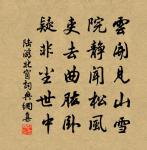 雲開見山雪
院靜聞松風
吏去曲肱臥
疑非塵世中
陸游北窗詞典網集